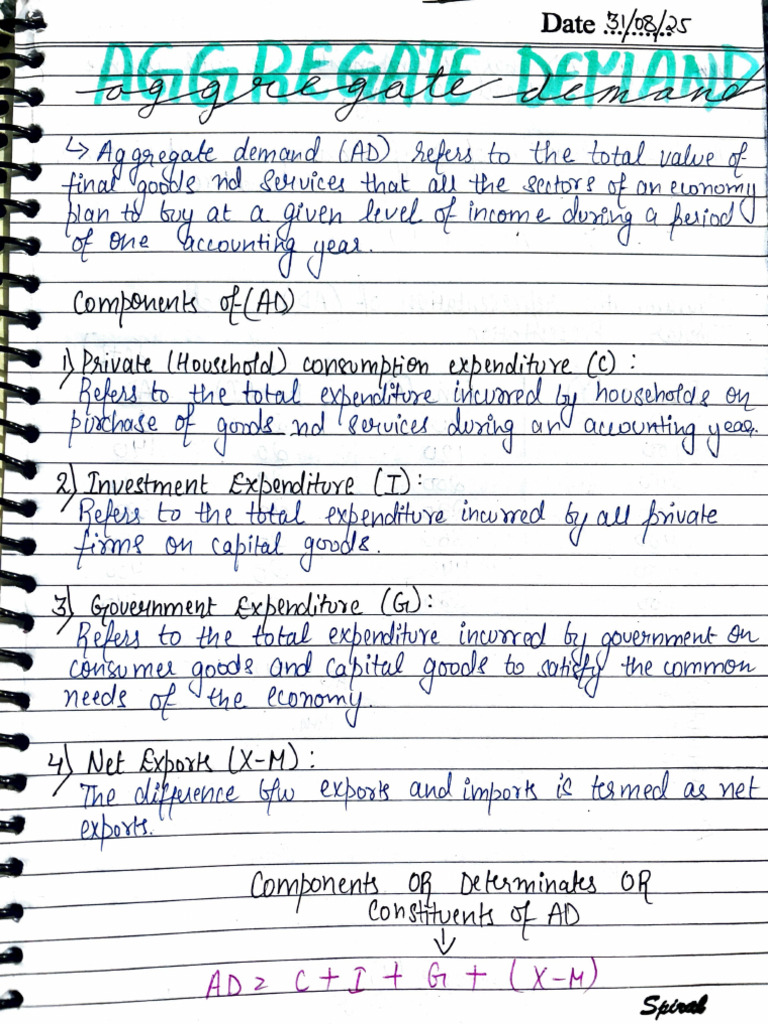 Date 31/08/25
AGGREGATE DEMAND
aggregate demand
↳ Aggregate demand (AD) refers to the total value of
final goods nd services that all the sectors of an economy
plan to buy at a given level of income during a period
of one accounting year.
Components of (AD)
1) Private (Household) consumption expenditure (C) :
Refers to the total expenditure incurred by households on
purchase of goods nd services during an accounting year.
2) Investment Expenditure (I) :
Refers to the total expenditure incurred by all private
firms on capital goods.
3) Government Expenditure (G) :
Refers to the total expenditure incurred by government on
consumer goods and capital goods to satisfy the common
needs of the economy.
4) Net Exports (X-M) :
The difference b/w exports and imports is termed as net
exports.
Components OR Determinates OR
Constituents of AD
↓
AD = C + I + G + (X-M)
Spiral